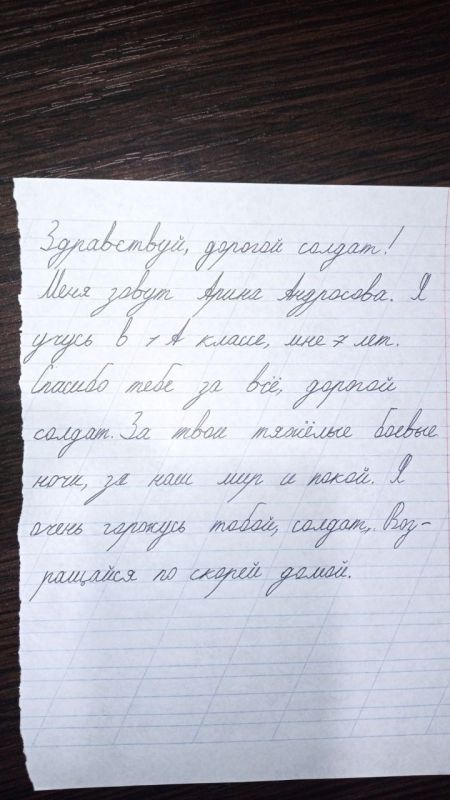 Здравствуй, дорогой солдат!
Меня зовут Арина Андросова. Я
учусь в 1 А классе, мне 7 лет.
Спасибо тебе за всё, дорогой
солдат. За твои тяжёлые боевые
ночи, за наш мир и покой. Я
очень горжусь тобой, солдат,. Воз-
ращайся по скорей домой.